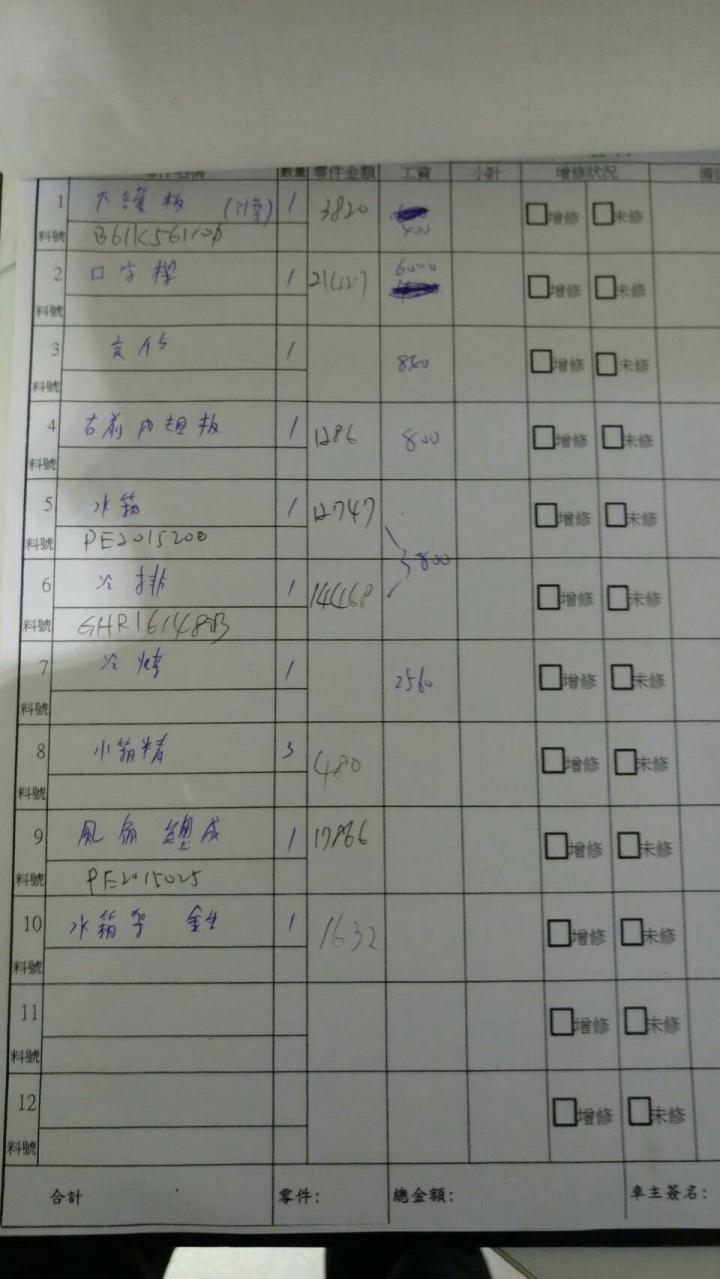 數量 零件金額 工資 小計 增修狀況
1 下護板 (引擎) 1 3820 400 增修 未修
料號 B61K56110
2 口字樑 1 6000 增修 未修
料號
3 1 增修 未修
料號
4 右前內 板 1 1286 800 增修 未修
料號
5 水箱 1 12747 增修 未修
料號 PE2015200
3800
6 冷排 1 增修 未修
料號 GHR161480B
7 冷 1 2560 增修 未修
料號
8 水箱精 3 480 增修 未修
料號
9 風扇總成 1 17866 增修 未修
料號 PE2015025
10 水箱 1 1632 增修 未修
料號
11 增修 未修
料號
12 增修 未修
料號
合計 零件: 總金額: 車主簽名: